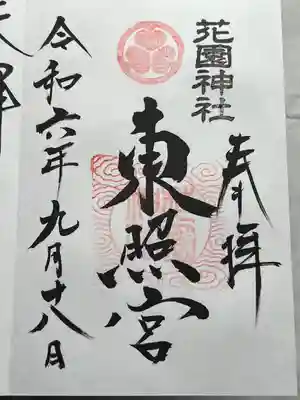 花園神社
奉拝
東照宮
令和六年九月十八日